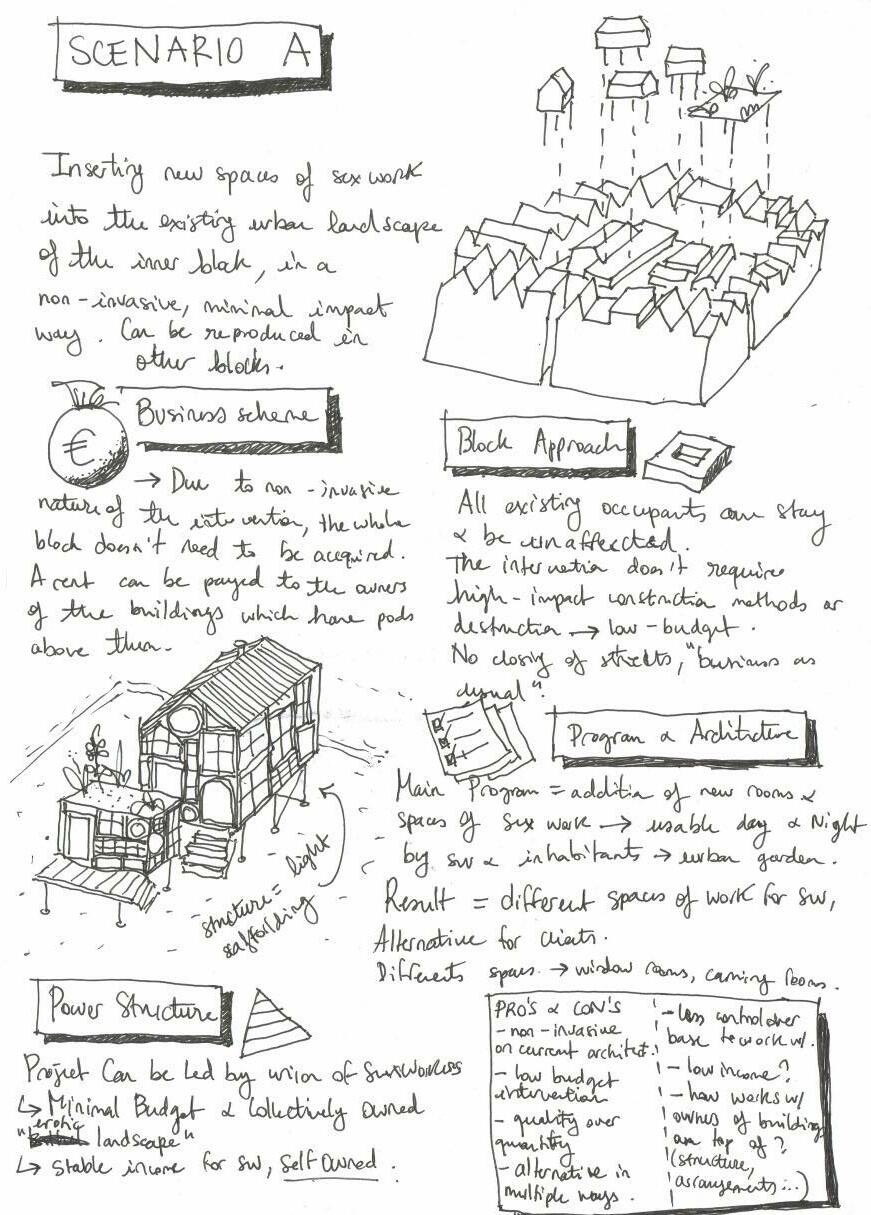 SCENARIO A
Inserting new spaces of sex work
into the existing urban landscape
of the inner block, in a
non-invasive, minimal impact
way. Can be reproduced in
other blocks.
Business scheme
€
→ Due to non-invasive
nature of the intervention, the whole
block doesn't need to be acquired.
A rent can be payed to the owners
of the buildings which have pods
above them.
Block Approach
All existing occupants can stay
& be unaffected.
The intervention doesn't require
high-impact construction methods or
destruction → low-budget.
No closing of streets, "business as
usual".
structure = light
Program & Architecture
Main Program = addition of new rooms &
spaces of sex work → usable day & Night
by sw & inhabitants → urban garden.
Result = different spaces of work for sw,
Alternative for clients.
Differents spaces → window rooms, rooms.
Power Structure
Project Can be Led by union of Sexworkers
↳ Minimal Budget & Collectively Owned
"erotic landscape"
↳ stable income for sw, Self Owned.
PRO'S & CON'S
- non-invasive
on current architect.
- low budget
intervention
- quality over
quantity
- alternative in
multiple ways.
- less control over
base to work w/.
- low income?
- how works w/
owners of building
on top of?
(structure,
arrangements...)